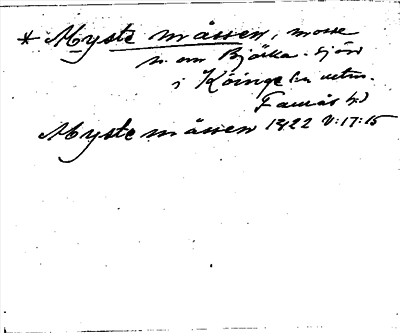 * Myste måssen, mosse
n. om Bjälka-sjön
i Köinge sn
Faurås hd
Myste måssen 1922 V:17:15